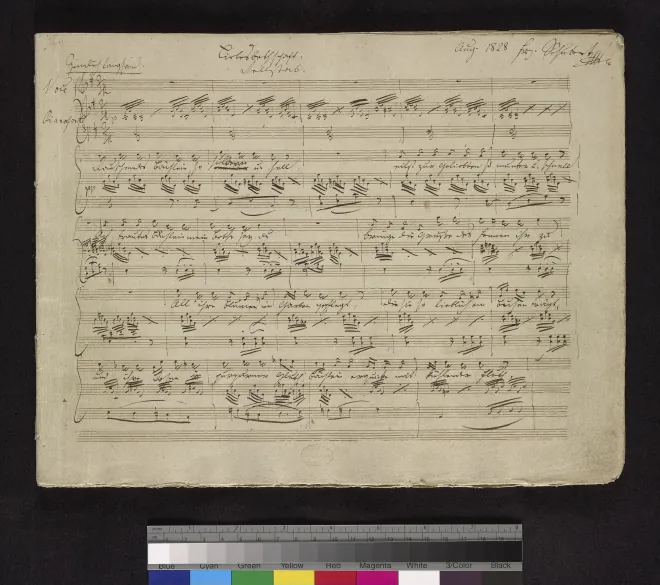 Liebesbotschaft.
Rellstab.
Aug. 1828 frz. Schubert
Ziemlich langsam.
Pianoforte
rauschendes Bächlein so silbern u hell
eilst zur Geliebten so munter u. schnell
Ach trautes Bächlein mein Bote sey du
bringe die Grüße des Fernen ihr zu
All ihre Blumen im Garten gepflegt,
die sie so lieblich am Busen trägt,
und ihre Rosen in purpurner Gluth Bächlein erquicke mit kühlender Fluth
Blue Cyan Green Yellow Red Magenta White 3/Color Black